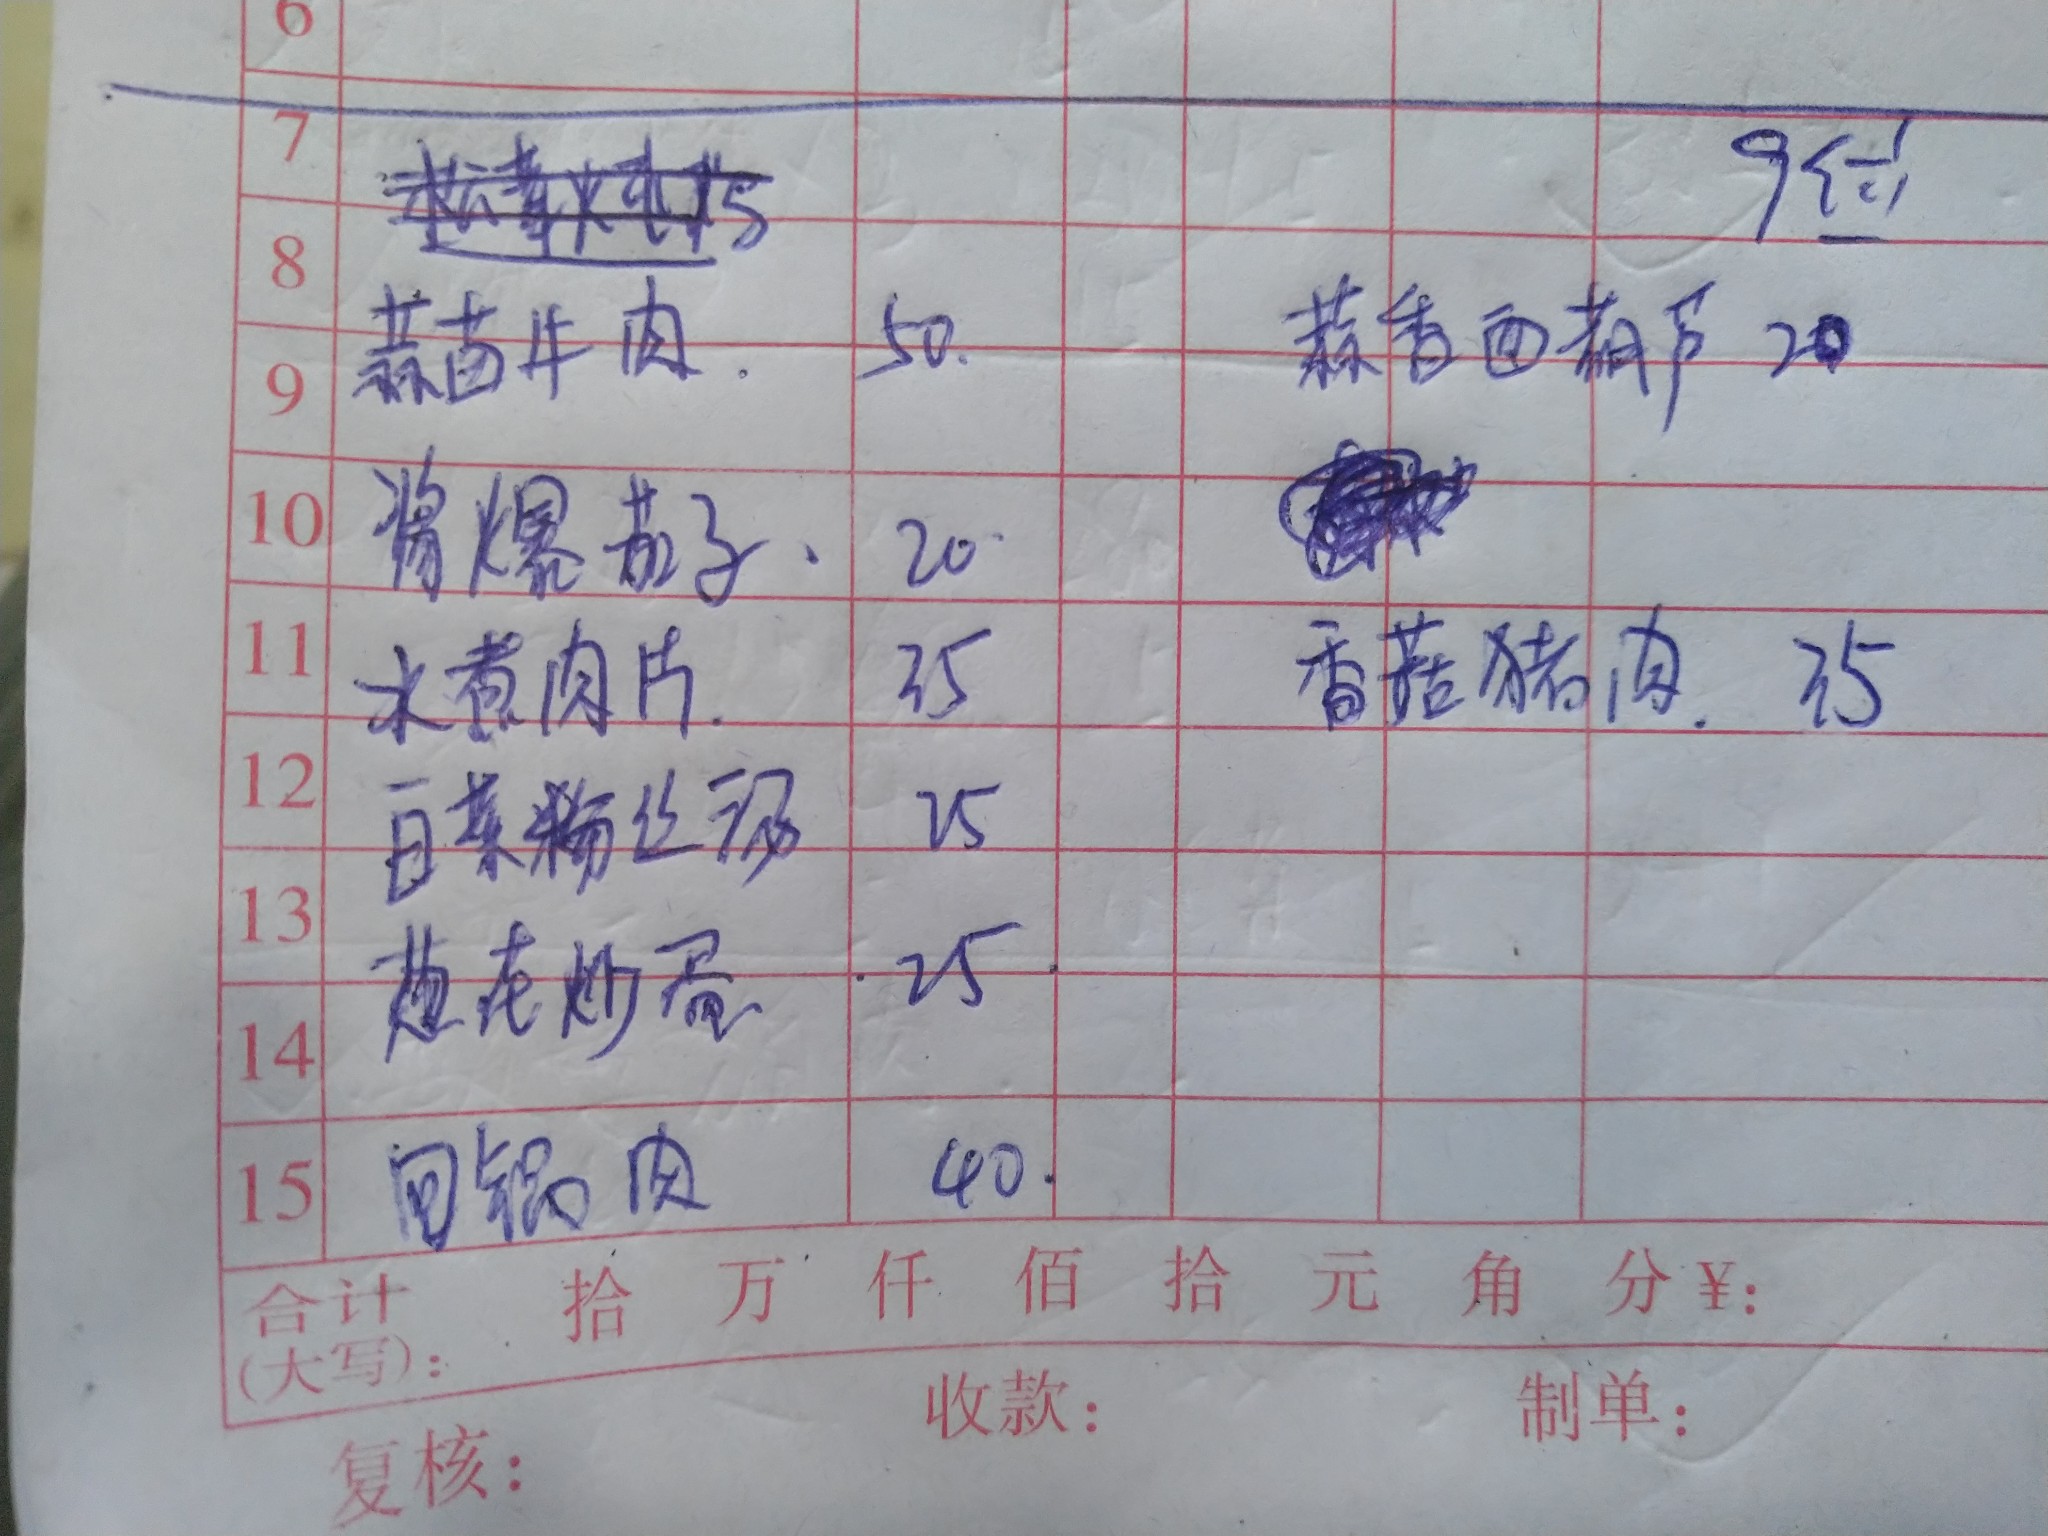 6
7 9位
8
蒜苗牛肉. 50. 蒜香西葫芦 20
9
10 酱爆茄子. 20.
11 水煮肉片. 35 香菇猪肉. 35
12 白菜粉丝汤 25
13
葱花炒蛋 . 25 .
14
15 回锅肉 40.
合计 拾 万 仟 佰 拾 元 角 分 ¥:
(大写):
收款: 制单:
复核: